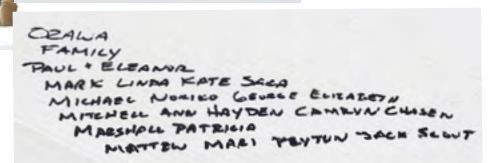 OZAWA
FAMILY
PAUL + ELEANOR
MARK LINDA KATE SARA
MICHAEL NORIKO GEORGE ELIZABETH
MITCHELL ANN HAYDEN CAMRYN CHASEN
MARSHALL PATRICIA
MATTEW MARI PEYTON JACK SCOUT